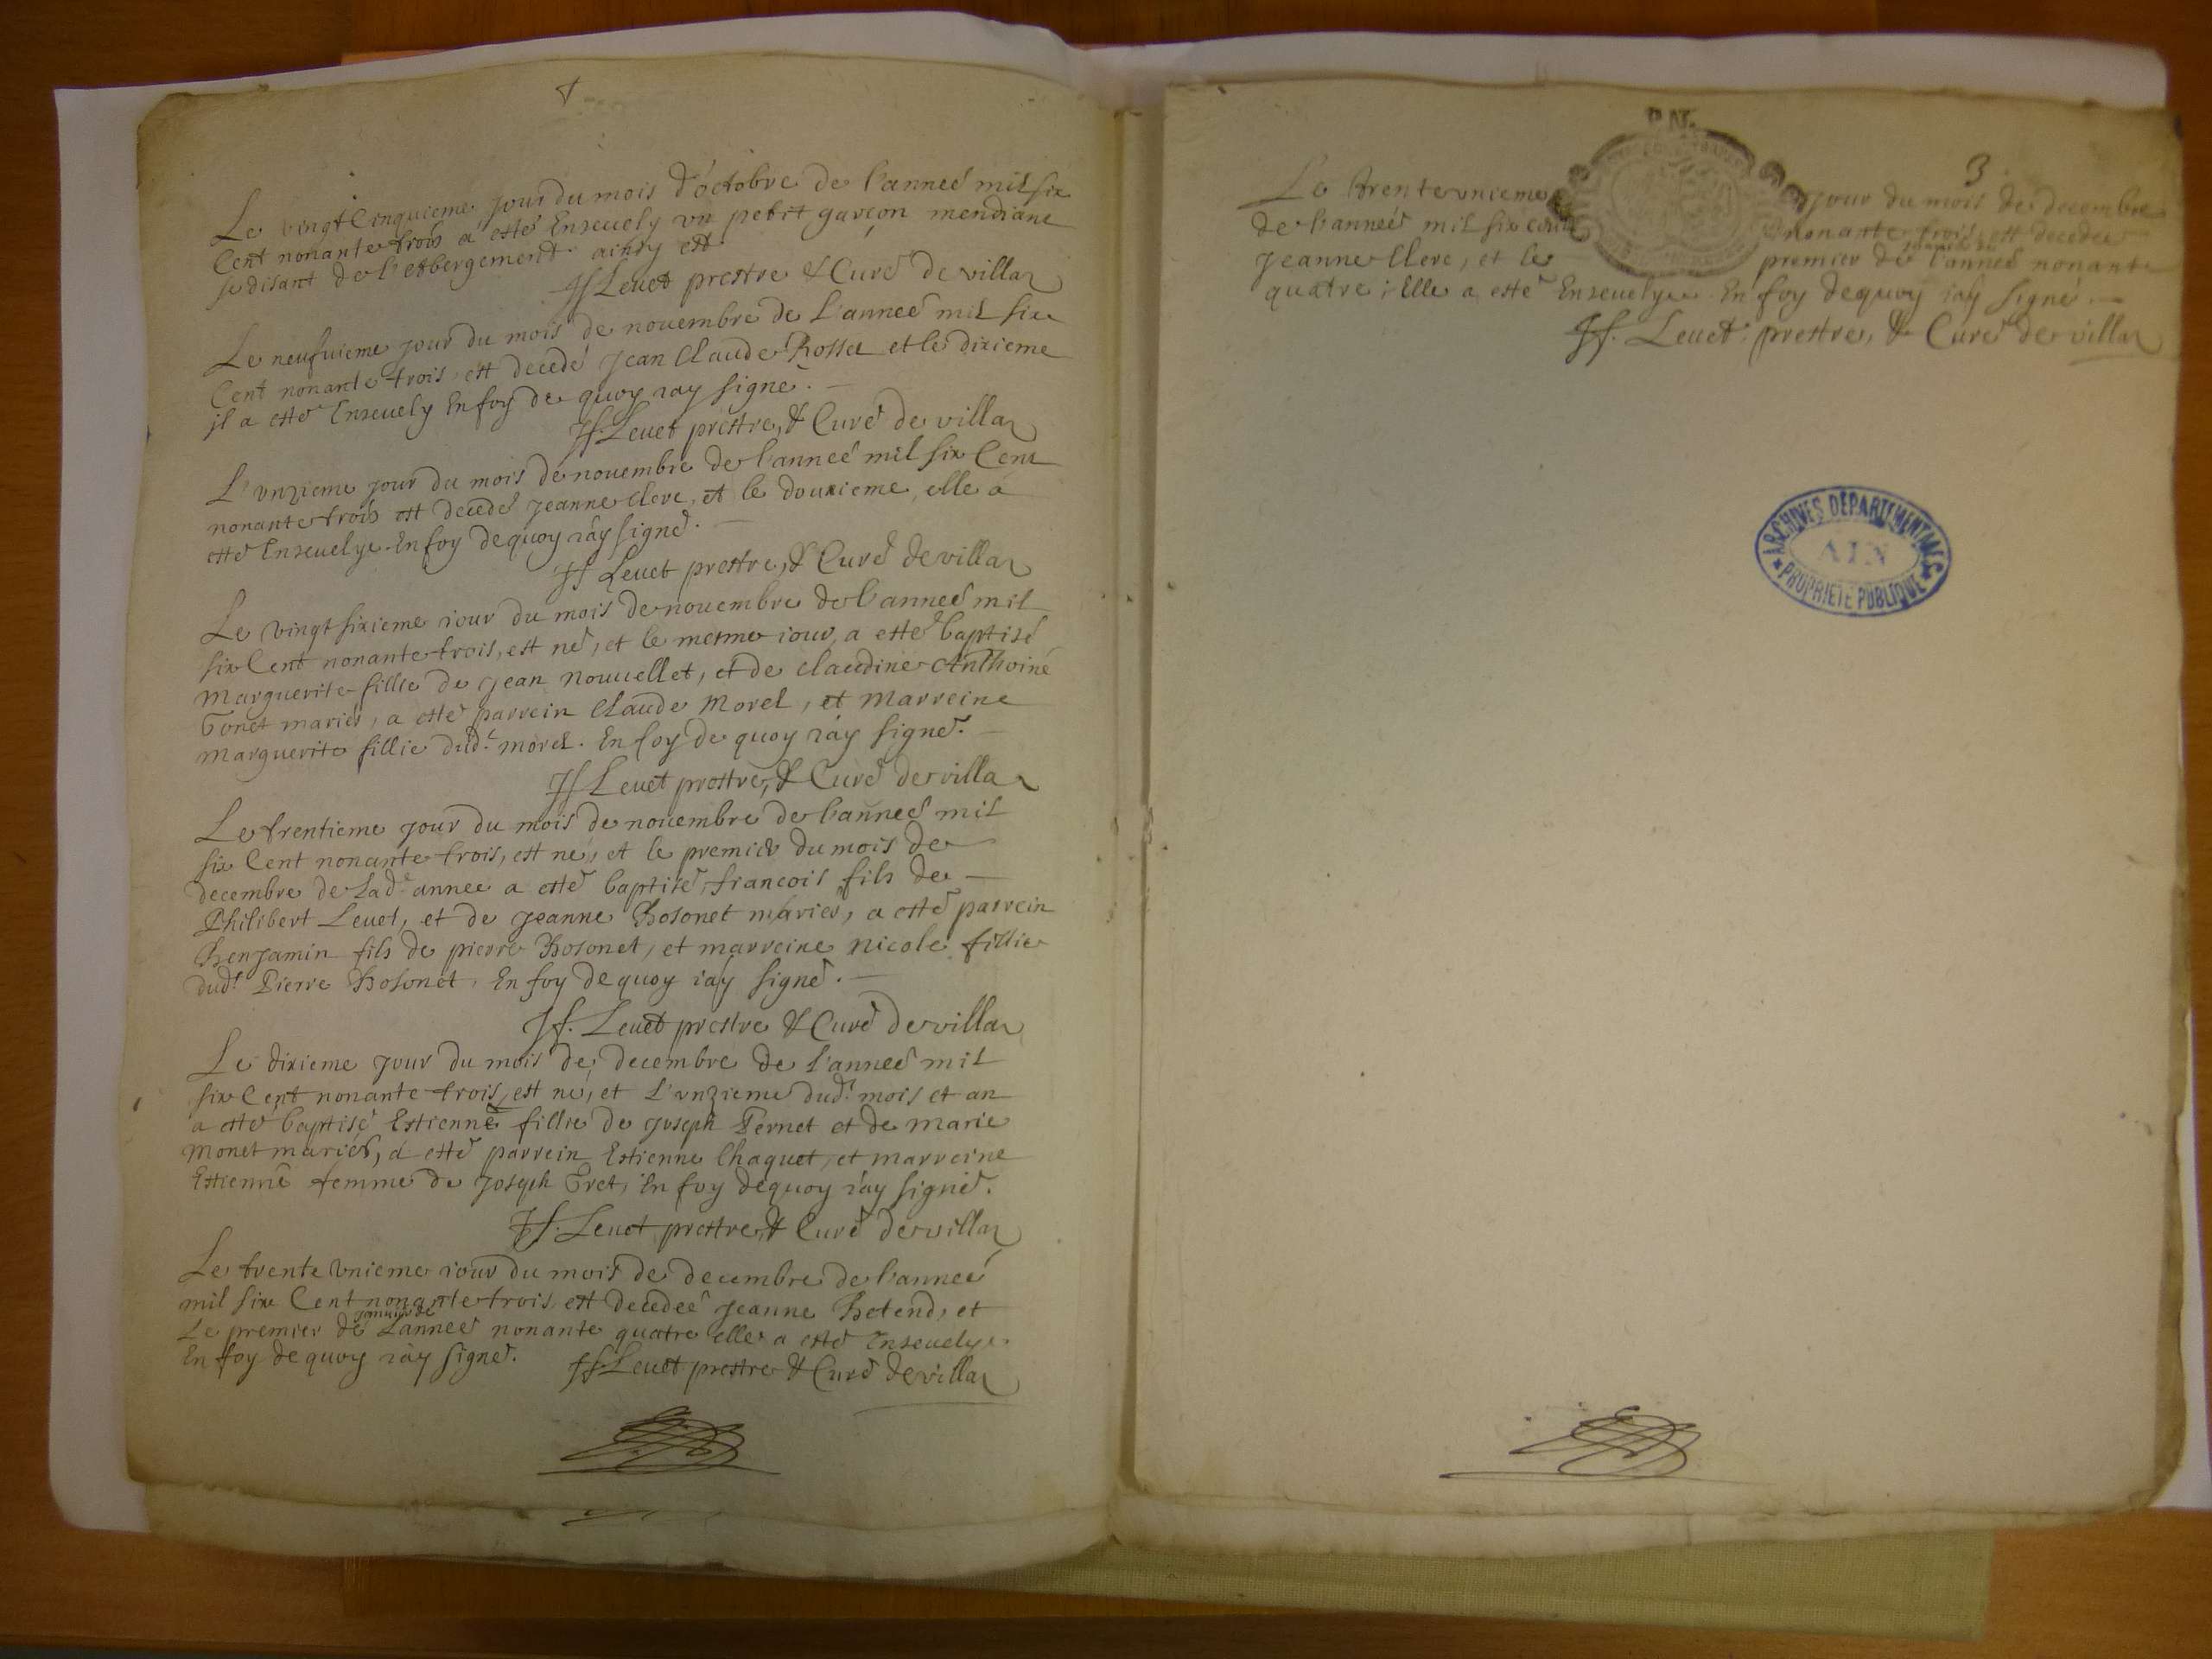 Le vingt Cinquieme jour du mois d'octobre de l'anneé mil six
Cent nonante trois a esté Enseuely vn petit garçon mendiant
se disant de l'esbergement ainsy est
Jf Leuet prestre & Curé de villar
Le neufuieme jour du mois de nouembre de L'anneé mil six
Cent nonante trois, est decedé Jean Claude Rosset et le dixieme
jl a esté Enseuely En foy de quoy iay signé.
Jf. Leuet prestre, & Curé de villar
L'vnzieme jour du mois de nouembre de l'anneé mil six Cent
nonante trois est decedé jeanne Clerc, et le douzieme, elle á
esté Enseuelye En foy de quoy iáy signé.
Jf Leuet prestre, & Curé de villar
Le vingt sixieme iour du mois de nouembre de l'anneé mil
six Cent nonante trois, est né, et le mesme iour, a esté baptisé
Marguerite fillie de Jean Nouuellet, et de claudine Anthoine
Gonet mariés, a esté parrein Claude Morel, et Marreine
Marguerite fillie dud.t morel. En foy de quoy iáy signé.
Jf Leuet prestre, & Curé de villar
Le trentieme jour du mois de nouembre de l'anneé mil
six Cent nonante trois, est né, et le premier du mois de
decembre de Lad.e annee a esté baptisé, francois fils de
Philibert Leuet, et de jeanne Bosonet mariés, a esté parrein
Benjamin fils de pierre Bosonet, et marreine nicole fillie
dud.t Pierre Bosonet, En foy de quoy iáy signé.
Jf. Leuet prestre & Curé de villar
Le dixieme jour du mois de decembre de l'anneé mil
six Cent nonante trois, est né, et L'vnzieme dud.t mois et an
a esté baptisé Estienne fillie de joseph Pernet et de marie
Monet mariés, á esté parrein Estienne Chaquet, et marreine
Estienne femme de Joseph Gret, En foy de quoy iáy signé.
Jf. Leuet prestre, & Curé de villar
Le trente vnieme iour du mois de decembre de l'anneé
mil six Cent nonante trois, est decedeé jeanne Betend, et
januier de
Le premier de L'anneé nonante quatre elle a esté Enseuelye.
En foy de quoy iáy signé. Jf Leuet prestre & Curé de villar
P. N.
3
Le trente vnieme jour du mois de decembre
de l'anneé mil six cent nonante trois, est decedeé
januier de
Jeanne Clerc, et le premier de l'anneé nonante
quatre, Elle a esté Enseuelye En foy de quoy iáy signé.
Jf. Leuet prestre, & Curé de villar
ARCHIVES DÉPARTEMENTALES
AIN
PROPRIÉTÉ PUBLIQUE